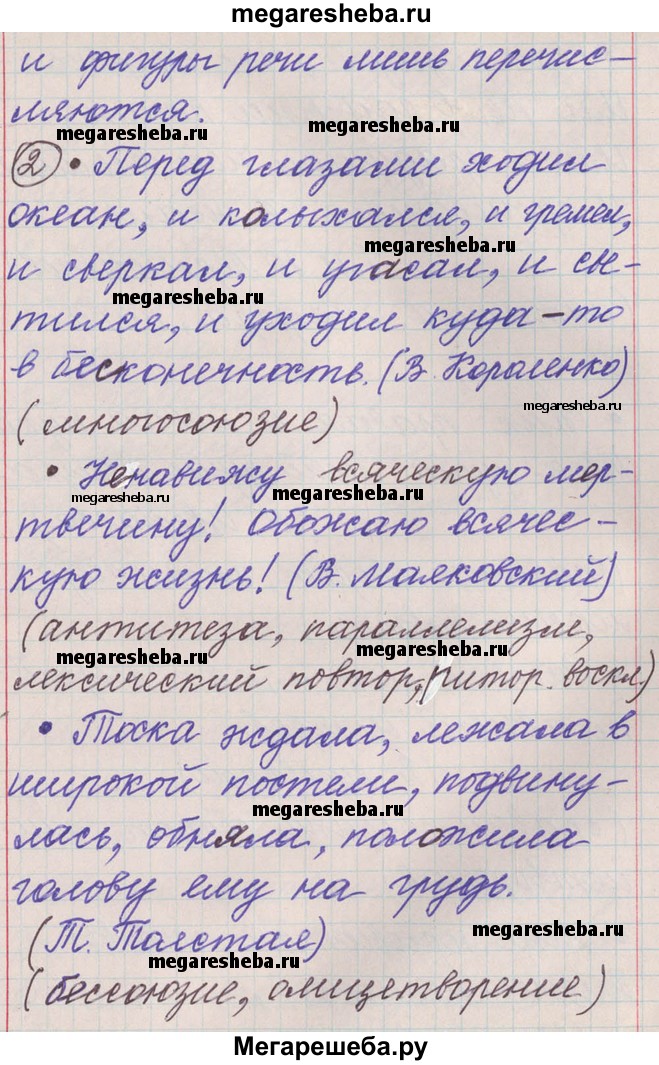 megaresheba.ru
и фигуры речи лишь перечис-
ляются.
megaresheba.ru megaresheba.ru
2 • Перед глазами ходил
океан, и колыхался, и гремел,
megaresheba.ru
и сверкал, и угасал, и све-
megaresheba.ru megaresheba.ru
тился, и уходил куда-то
в бесконечность. (В. Короленко)
megaresheba.ru
(многосоюзие)
• Ненавижу всяческую мер-
megaresheba.ru megaresheba.ru
твечину! Обожаю всячес-
кую жизнь! (В. Маяковский)
(антитеза, параллелизм,
megaresheba.ru megaresheba.ru
лексический повтор, ритор. воскл)
• Тоска ждала, лежала в
широкой постели, подвину-
megaresheba.ru
лась, обняла, положила
голову ему на грудь.
megaresheba.ru
(Т. Толстая)
megaresheba.ru
(бессоюзие, олицетворение)
Мегарешеба.ру